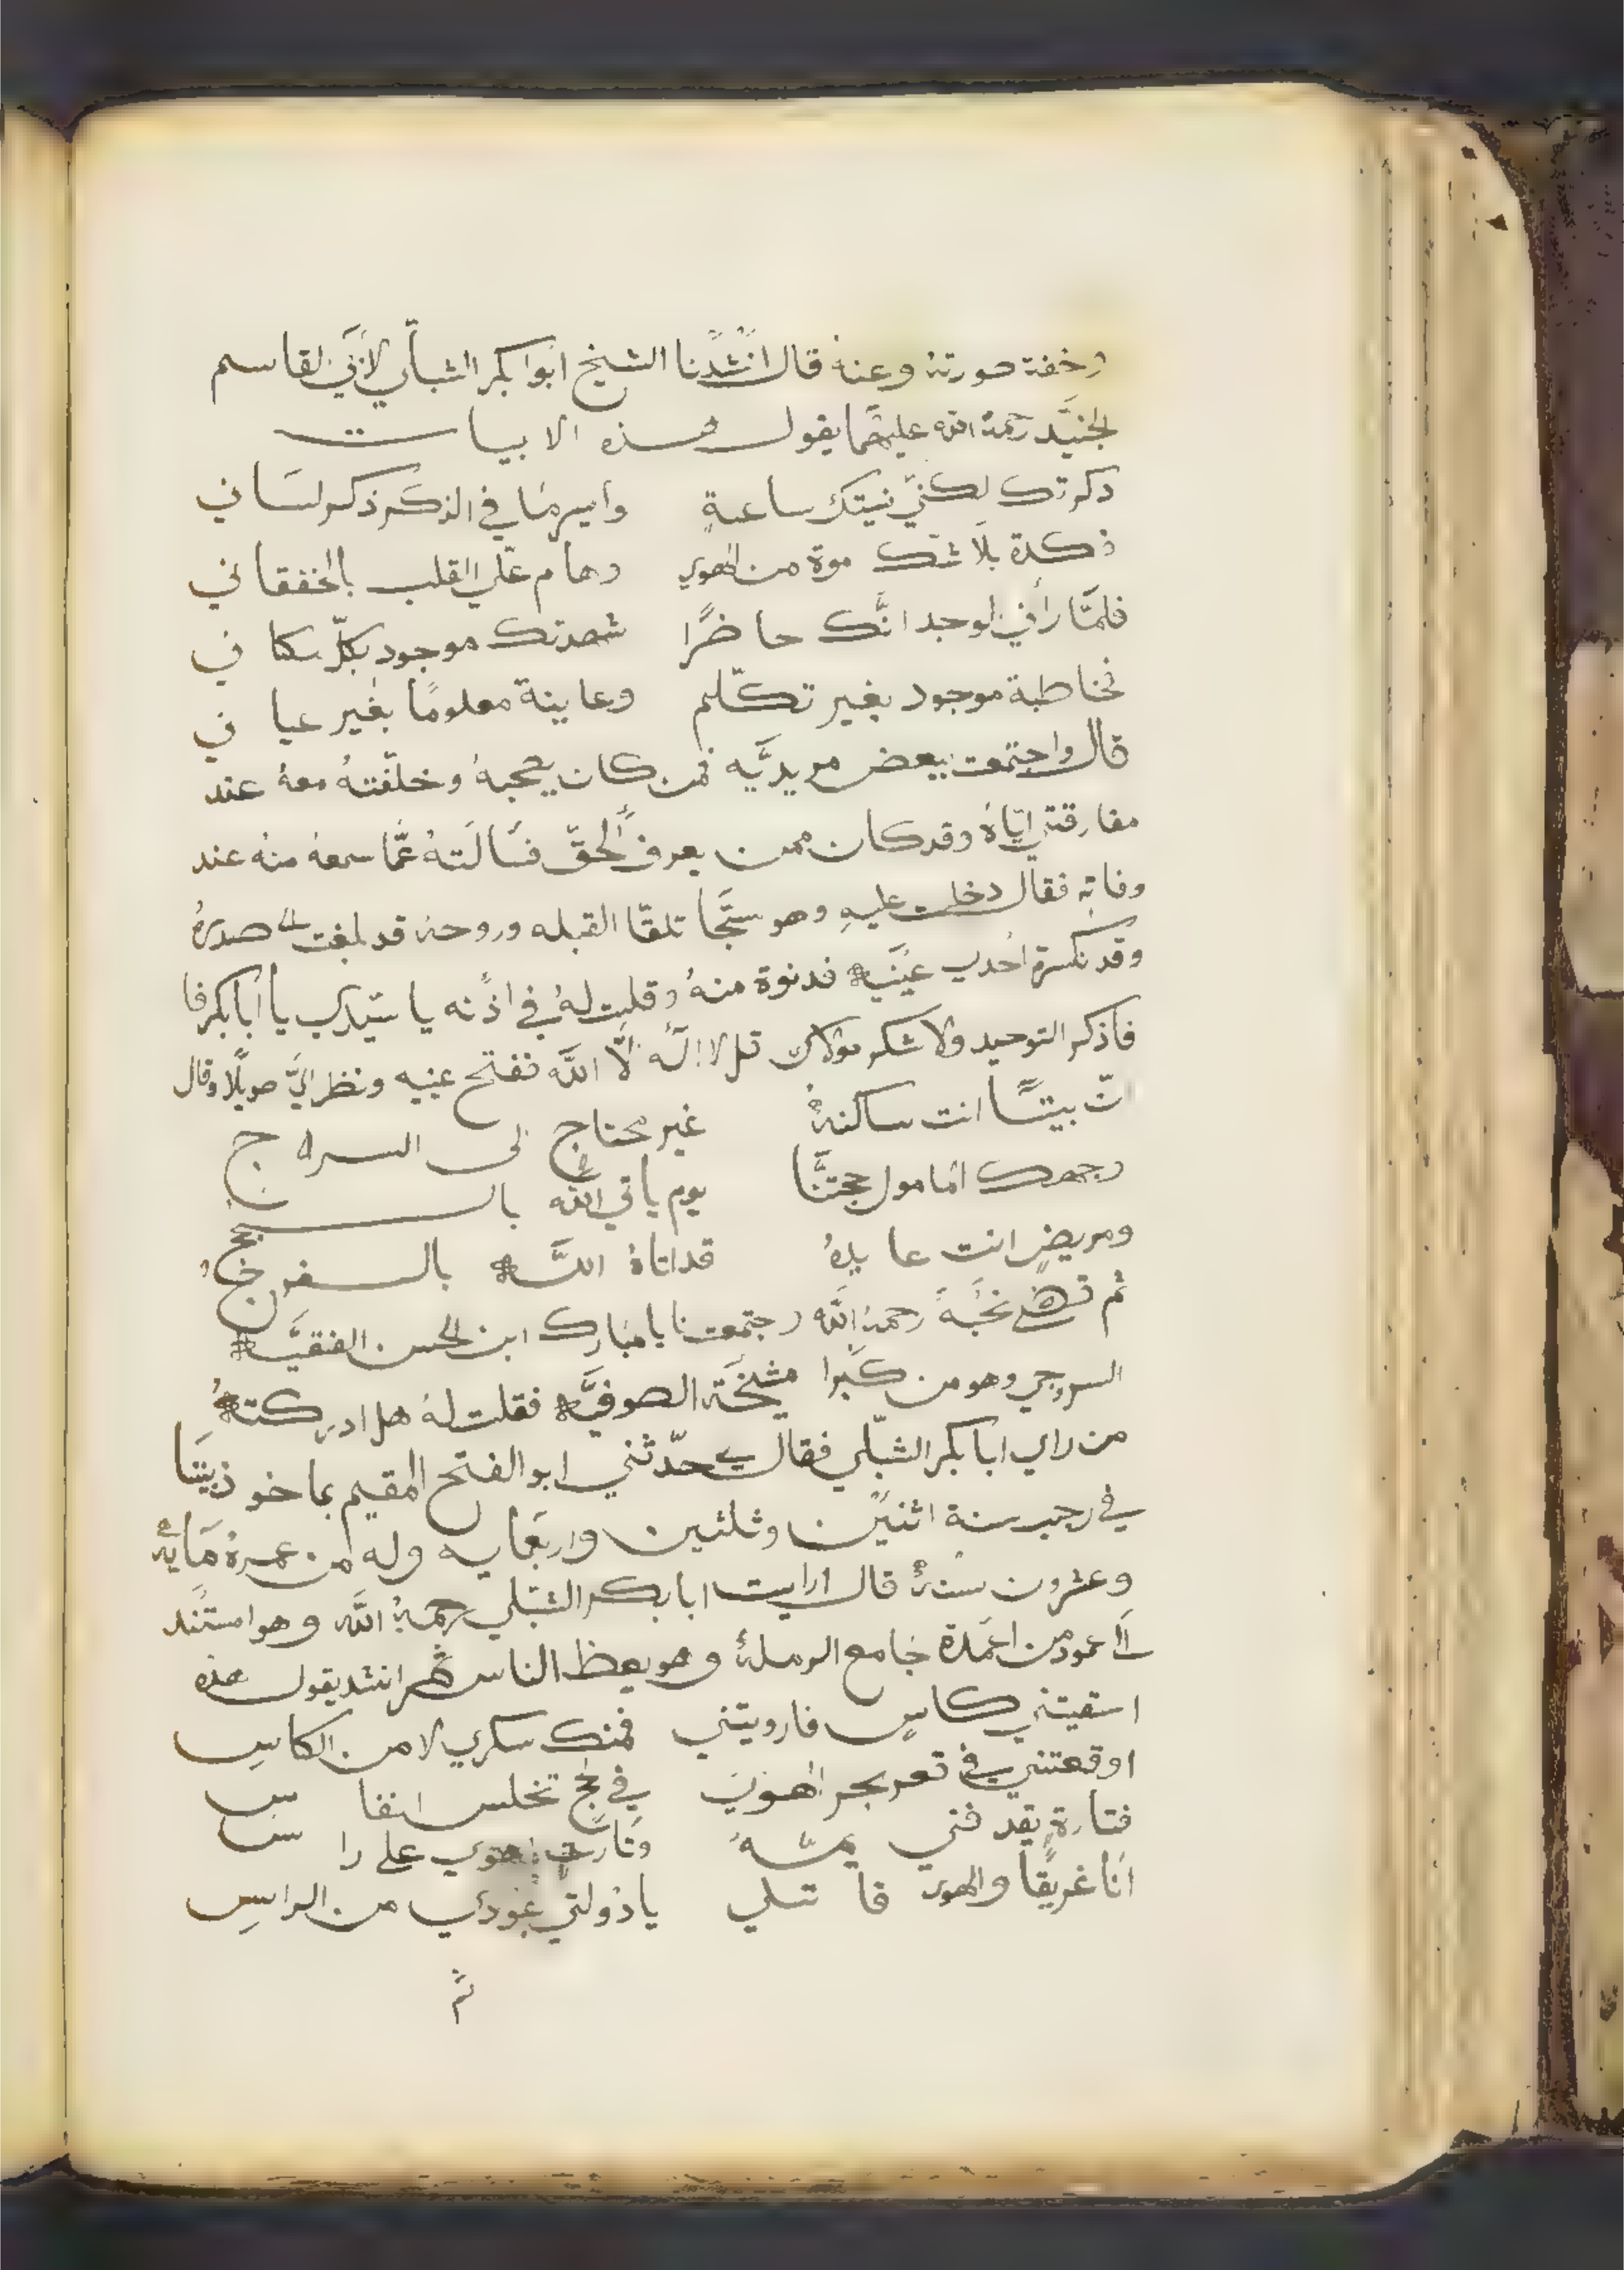 وخفة صورته وعنه قال انشدنا الشيخ ابوا بكر الشبلي لأبي القاسم
الجنيد رحمة الله عليهما يقول هذه الابيات
ذكرتك لكني نسيتك ساعةٍ وايسر ما في الذكر ذكر لساني
فكدة بلا شك موة من الهوي وهام علي القلب بالخفقاني
فلما رأني الوجد انك حاضرًا شهدتك موجود بكل مكاني
فخاطبة موجود بغير تكلم وعاينة معلومًا بغير عياني
قال واجتمعت ببعض مريديه فمن كان يصحبه وخلفته معه عند
مفارقتي اياه وقد كان ممن يعرف الحق فسالته عما سمعه منه عند
وفاته فقال دخلت عليهِ وهو سجا تلقا القبله وروحه قد بلغت الي صدره
وقد نكسرة احدي عينيه فدنوة منه وقلت له في اذنه يا سيدي يا أبا بكر فا
فاذكر التوحيد ولاشكر مولاك قل لا اله الا الله ففتح عينيه ونظر الي طويلًا وقال
ان بيتًا انت ساكنه غير محتاج الى السراج
وجهك المامول حجتنا يوم ياتي الله بالحجج
ومريضٍ انت عايده قد اتاه الله بالفرج
ثم قضي نحبه رحمه الله واجتمعت بابا مبارك ابن الحسن الفقيه
السروجي وهو من كبرا مشيخة الصوفيه فقلت له هل ادركته
من راي ابا بكر الشبلي فقال لي حدثني ابو الفتح المقيم بماخوذيتا
في رجب سنة اثنين وثلثين واربعمايه وله من عمره مايه
وعشرون سنه قال ارايت ابا بكر الشبلي رحمه الله وهو امستند
الي عمود من اعمدة جامع الرمله وهو يعظ الناس ثم انشد يقول هذه
اسقيتني كاسٍ فارويتني فمنك سكري لا من الكاسِ
اوقعتني في قعر بحر الهوي في لج تخلس انفاس
فتارةٍ يقدفني يمه وتارة اهوي على راس
انا غريقًا والهوي قاتلي ياذولتي عودي من الراسِ
ثم